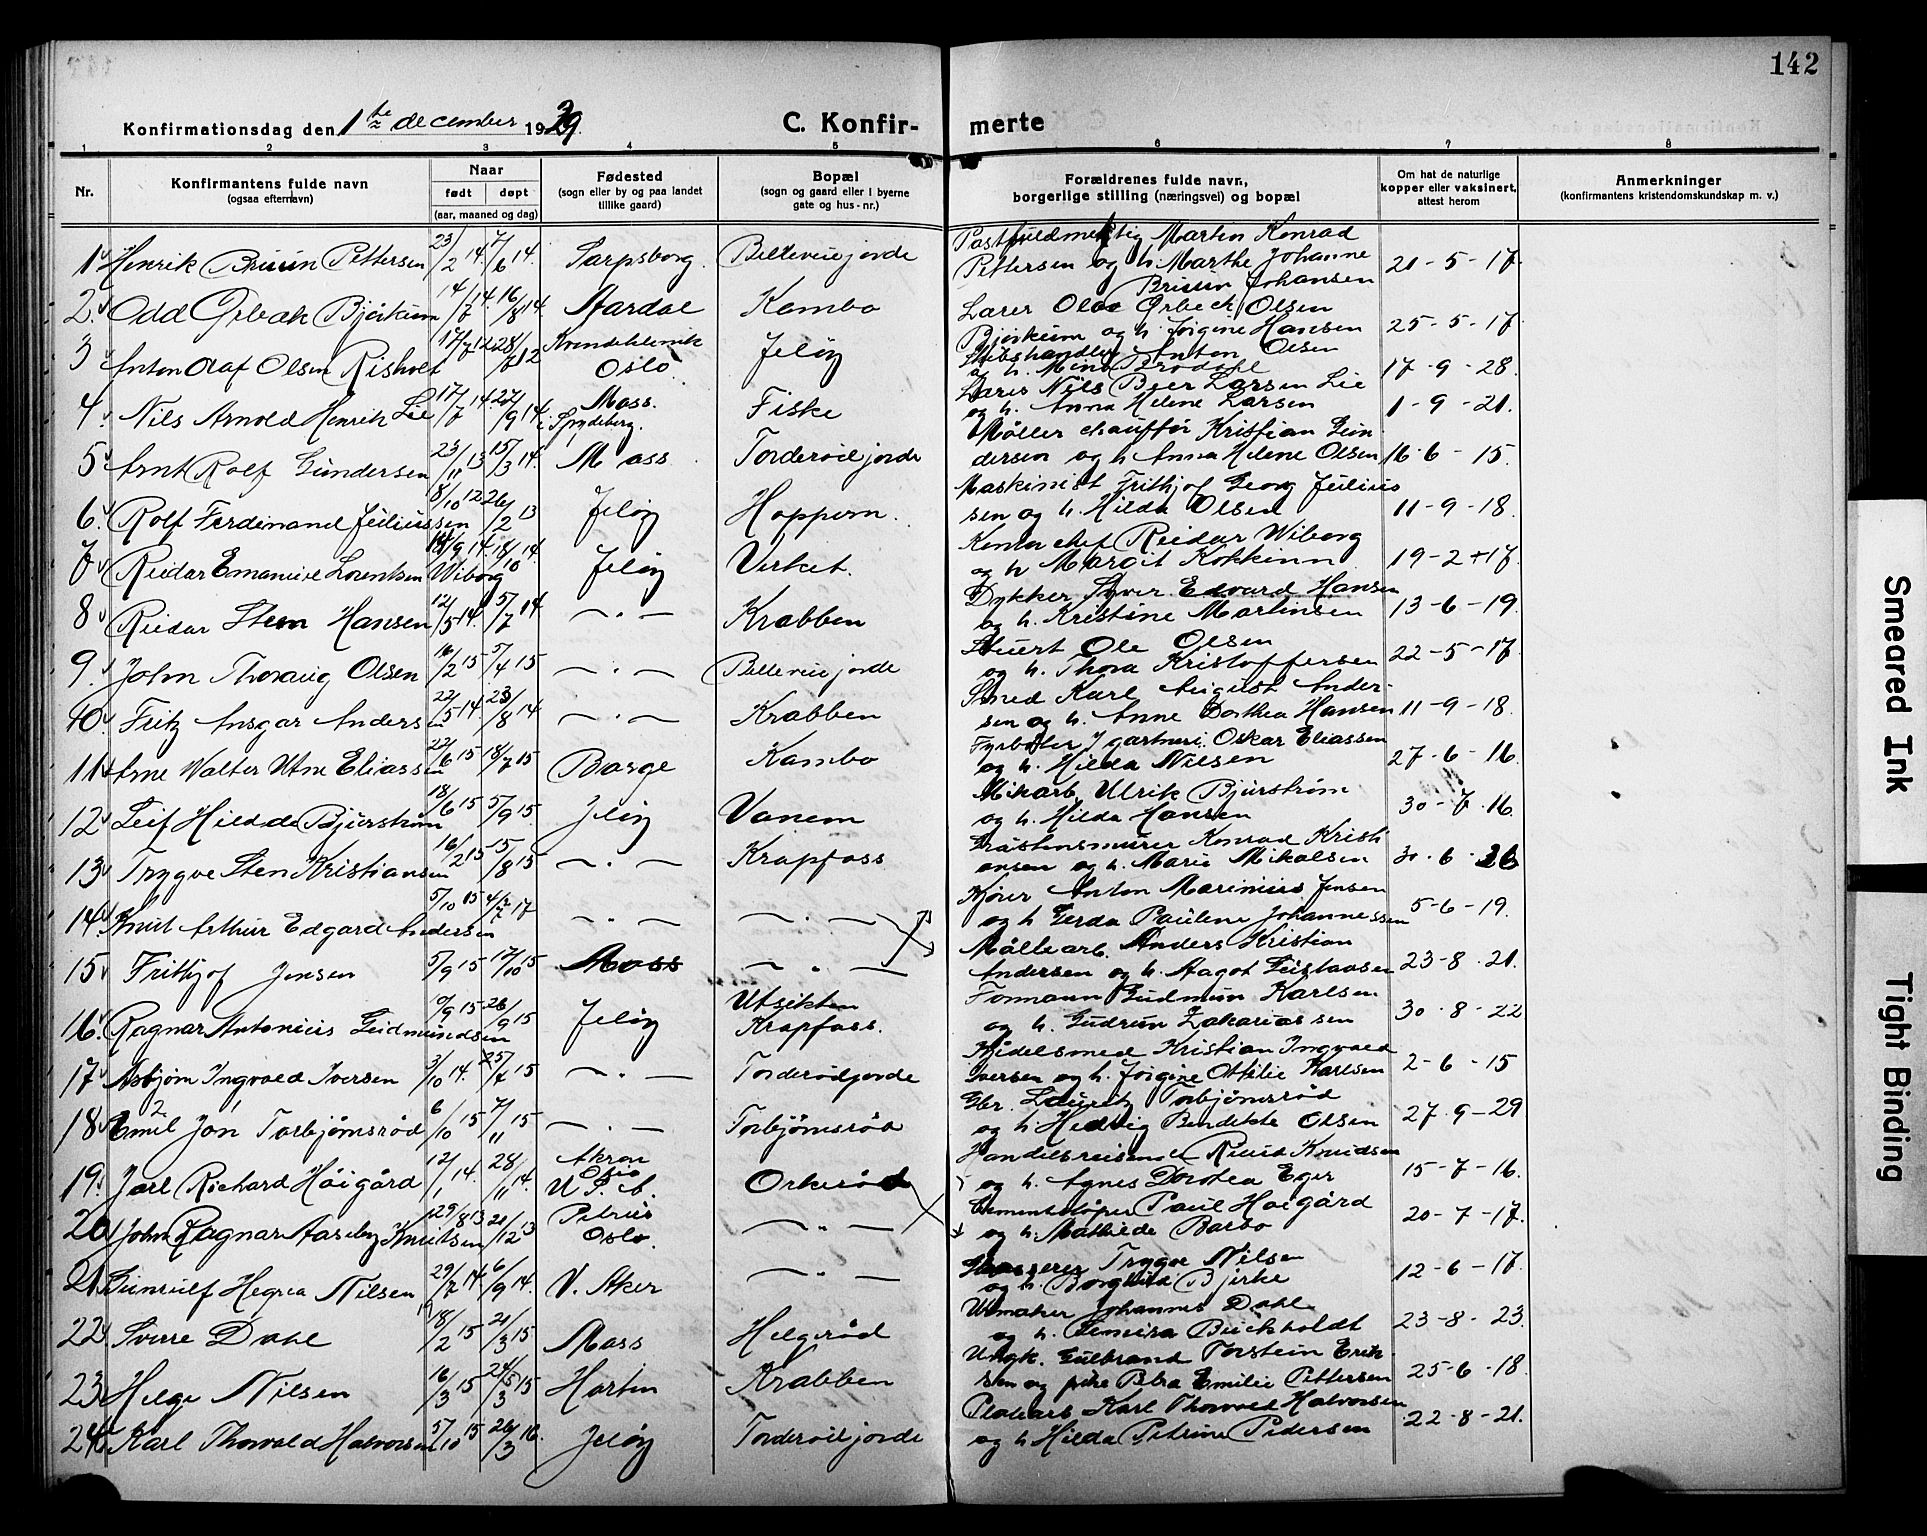 142
Konfirmationsdag den 1te december 1929. C. Konfir- merte
1 2 3 4 5 6 7 8
Nr. Konfirmantens fulde navn (ogsaa efternavn) Naar født døpt (aar, maaned og dag) Fødested (sogn eller by og paa landet tillike gaard) Bopæl (sogn og gaard eller i byerne gate og hus-nr.) Forældrenes fulde navn, borgerlige stilling (næringsvei) og bopæl Om hat de naturlige kopper eller vaksinert, attest herom Anmerkninger (konfirmantens kristendomskundskap m. v.)
1 Henrik Bruun Pettersen 23/2 14. 7/6 14. Sarpsborg. Bellevuejorde Postfuldmektig Martin Konrad
Pettersen og h. Marthe Johanne 21-5-17.
Bruun Johansen
2. Odd Ørbech Bjørkum 14/7 14. 16/8 14. Aardal Kambo Lærer Olav Ørbech Olsen
Bjørkum og h. Jørgine Hansen 25-5-17.
3 Anton Olaf Olsen Risholt Oslo Jeløy Anton Olsen
og h. 17-9-28.
4. Nils Arnold Henrik Lie 17/7 14. 27/9 14. Moss. i Spydeberg. Fiske Nils Peer Larsen Lie
og h. Anna Helene Larsen 1-9-21.
5 Arnt Rolf Gundersen 23/11 13 15/3 14. Moss Torderødjorde Møller chauffør Kristian Gun
dersen og h Anna Helene Olsen 16-6-15.
6. Rolf Ferdinand Juliussen 8/10 12 26/2 13 Jeløy Hoppern. Maskinist Frithjof Georg Julius
sen og h. Hilda Olsen 11-9-18.
7 Reidar Emanuel Lorentsen Wiborg Jeløy Verket. Kontorchef Reidar Wiborg
og h Margit Kokkinn 19-2-17.
8 Reidar Steen Hansen 12/5 14. 5/7 14. —"— Krabben Dykker Syver Edvard Hansen
og h. Kristine Martinsen 13-6-19.
9. John Thoraug Olsen 16/2 15 5/4 15 —"— Bellevuejorde Stuert Ole Olsen
og h. Thora Kristoffersen 22-5-17.
10. Fritz Ansgar Andersen 22/5 14. 23/8 14 —"— Krabben Smed Karl August Ander-
sen og h. Anne Dorthea Hansen 11-9-18.
11 Arne Walter Utne Eliassen 22/6 15 18/7 15 Borge Kambo Fyrbøter i gartneri Oskar Eliassen
og h. Hilda Nilsen 27-6-16.
12 Leif Hilde Bjurstrøm 18/6 15 5/9 15. Jeløy Vanem Mekarb. Ulrik Bjurstrøm
og h. Hilda Hansen 30-7-16.
13 Trygve Sten Kristiansen 16/2 15 5/8 15 —"— Krapfoss Gråstensmurer Konrad Kristi
ansen og h. Marie Mikalsen 30-6-26
14. Knut Arthur Edgard Andersen 5/10 15 —"— —"— Kjører Anton Marinius Jensen
og h Gerda Pauline Johannessen 5-6-19.
15 Frithjof Jensen 5/9 15 17/10 15 Moss —"— Møllearb. Anders Kristian
Andersen og h. Aagot Gustavsen 23-8-21.
16. Ragnar Antonius Gudmundsen 9/9 15 26/9 15 Jeløy Utsikten
Krapfoss. Formann Gudmun Karlsen
og h. Gudrun Zakariassen 30-8-22
17 Asbjørn Ingvald Iversen 3/10 14. 25/7 15 —"— Torderødjorde Kjedelsmed Kristian Ingvald
Iversen og h. Jørgine Ottilie Karlsen 2-6-15
18 Emil Jon Torbjørnsrød 6/10 15 7/11 15 —"— Torbjørnsrød Gbr. Lauritz Torbjørnsrød
og h Hedvig Bendikte Olsen 27-9-29
19. Jarl Richard Höigård 12/1 14. 28/11 14. Akron
Ohio
U.S.A. Orkerød Handelsreisende Knudsen
og h. Agnes Dorotea Eger 15-7-16.
20 John Ragnar Aaseby Knutsen 29/8 13 21/12 13 Petrus
Oslo. —"— Cementstøper Paul Høigård
og h. Mathilde Barbo 20-7-17.
21. Gunnulf Hegna Nilsen 29/7 14. 6/9 14. V. Aker —"— Trygve Nilsen
og h. Borghild Bjerke 12-6-17.
22. Sverre Dahl 18/2 15 21/3 15 Moss Helgerød Urmaker Johannes Dahl
og h. Buchholdt 23-8-23.
23 Helge Nilsen 16/3 15 24/5 15 Horten Krabben Ungk. Gulbrand Torstein Erik
sen og pike Petra Emilie Pettersen 25-6-18.
24. Karl Thorvald Halvorsen 5/10 15 26/3 16. Jeløy Torderødjorde Platearb Karl Thorvald Halvorsen
og h Hilda Petrine Pedersen 22-8-21.
Smeared Ink
Tight Binding